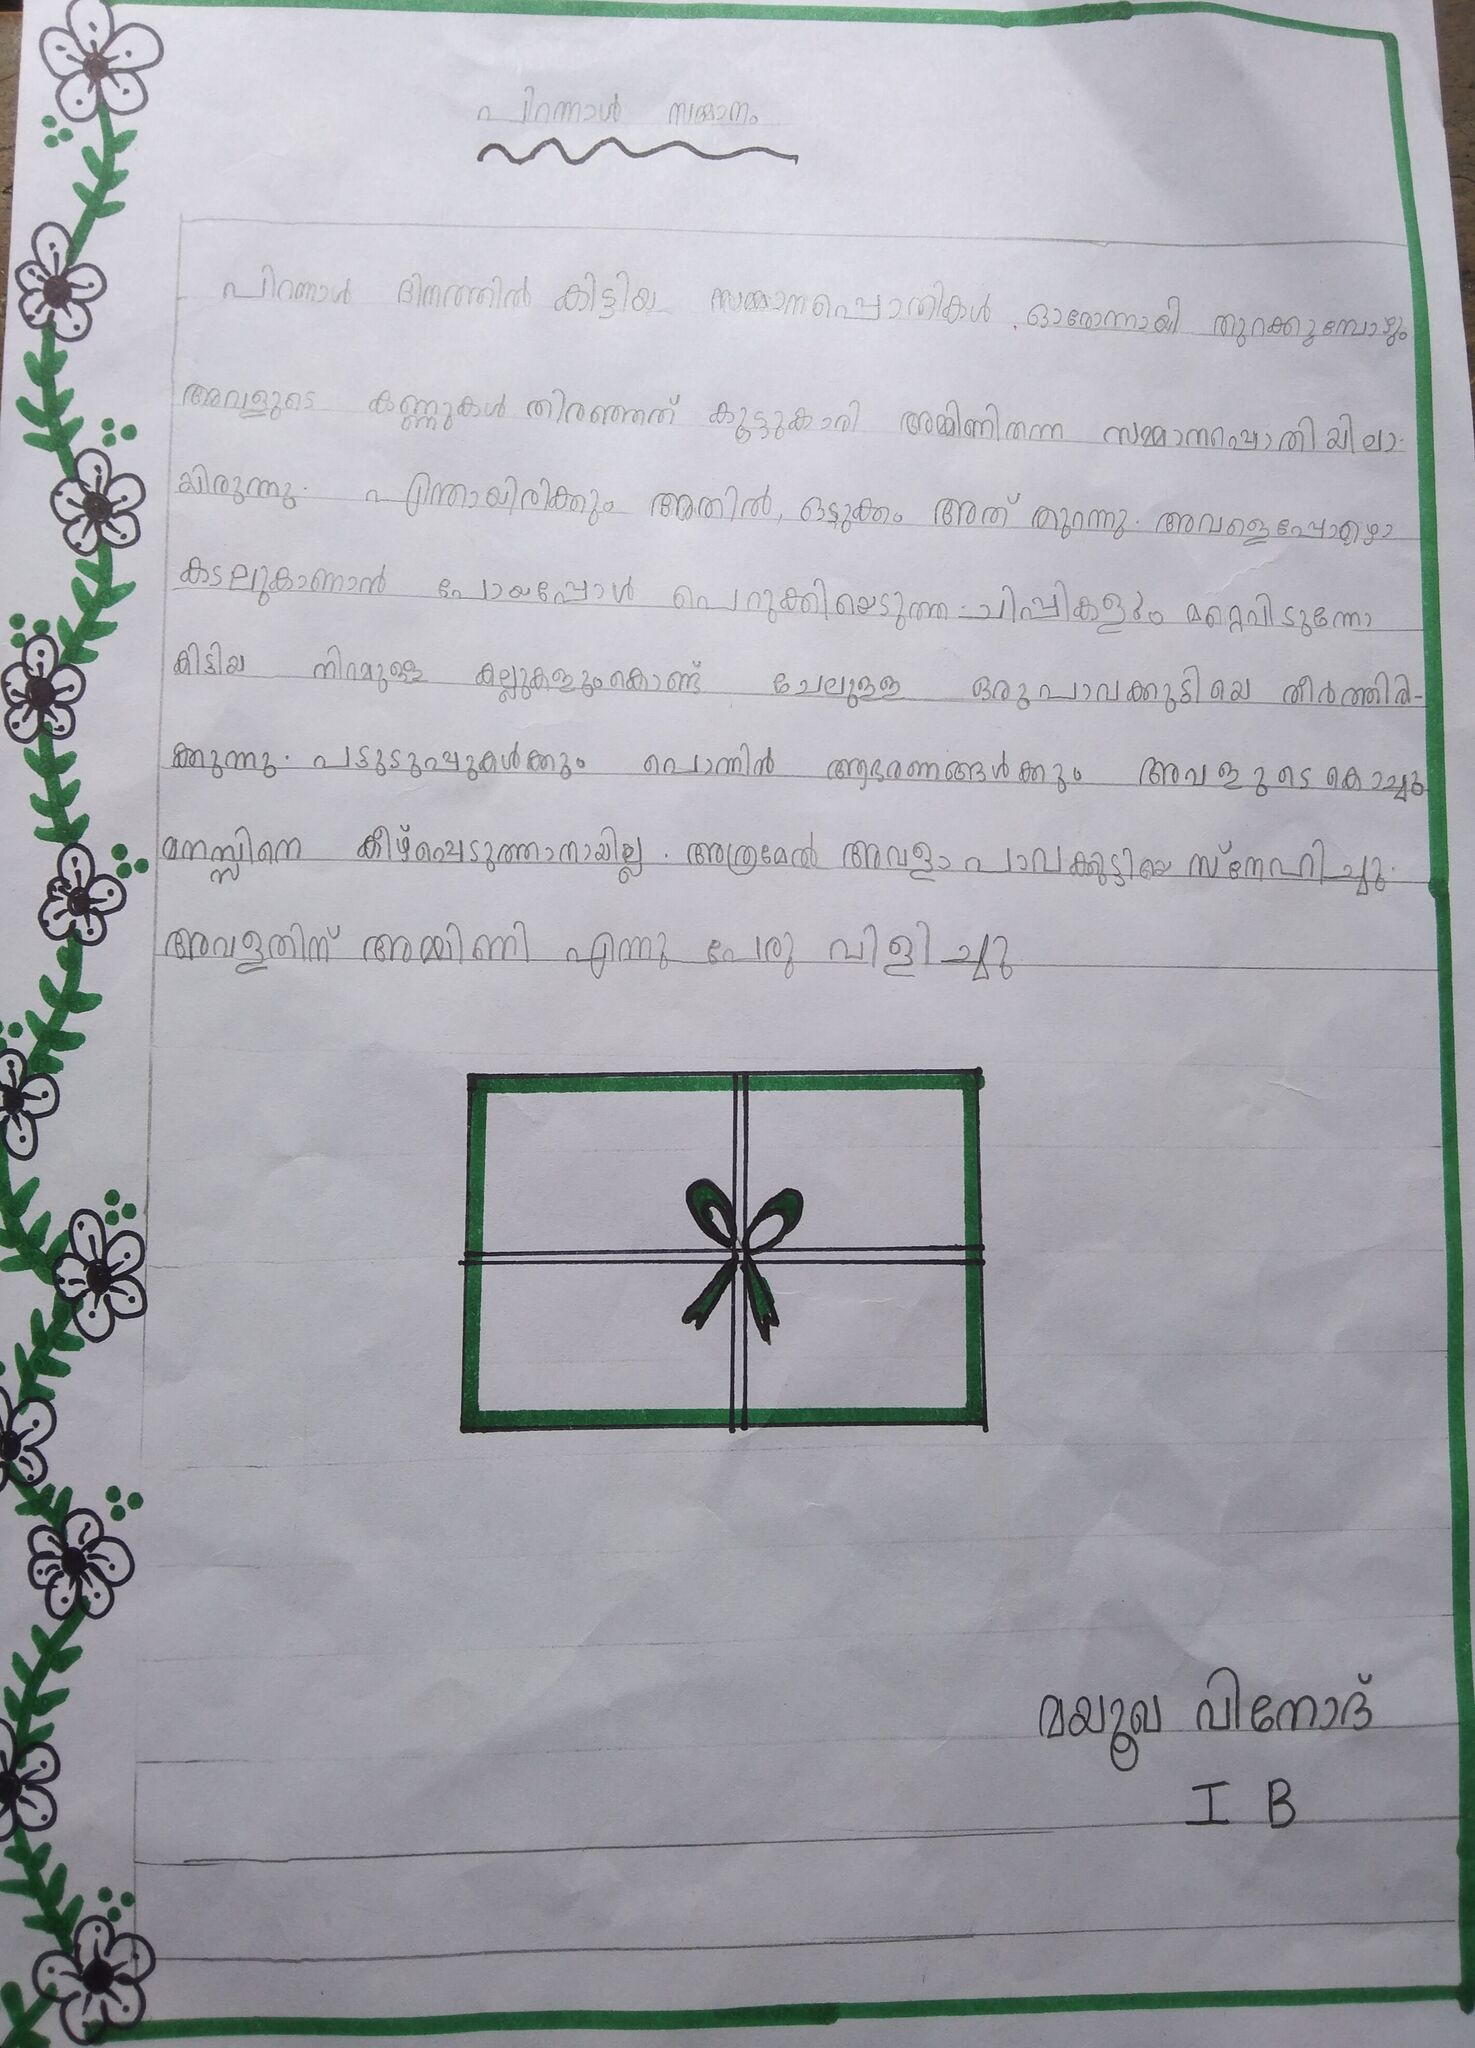 പിറന്നാൾ സമ്മാനം
പിറന്നാൾ ദിനത്തിൽ കിട്ടിയ സമ്മാനപ്പൊതികൾ ഓരോന്നായി തുറക്കുമ്പോഴും
അവളുടെ കണ്ണുകൾ തിരഞ്ഞത് കൂട്ടുകാരി അമ്മിണിതന്ന സമ്മാനപ്പൊതിയിലാ
യിരുന്നു. എന്തായിരിക്കും അതിൽ, ഒടുക്കം അത് തുറന്നു. അവളെപ്പോഴൊ
കടലുകാണാൻ പോയപ്പോൾ പെറുക്കിയെടുത്ത ചിപ്പികളും മറ്റെവിടുന്നോ
കിട്ടിയ നിറമുള്ള കല്ലുകളുംകൊണ്ട് ചേലുള്ള ഒരുപാവക്കുട്ടിയെ തീർത്തിരി-
ക്കുന്നു. പട്ടുടുപ്പുകൾക്കും പൊന്നിൻ ആഭരണങ്ങൾക്കും അവളുടെ കൊച്ചു
മനസ്സിനെ കീഴ്പ്പെടുത്താനായില്ല. അത്രമേൽ അവളാ പാവക്കുട്ടിയെ സ്നേഹിച്ചു.
അവളതിന് അമ്മിണി എന്നു പേരു വിളിച്ചു
മയൂഖ വിനോദ്
I B